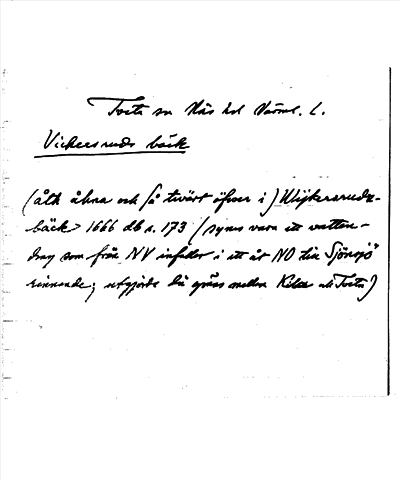 Tveta sn Näs hd Värml. l.
Vickersruds bäck
(åth åkna och så twärt öfwer i) Wijkersrudz-
bäck 1666 db s. 173 (synes vara ett vatten-
drag som från NV infaller i ett åt NO till Sjönsjö
rinnande; utgjorde då gräns mellan Kila och Tveta)